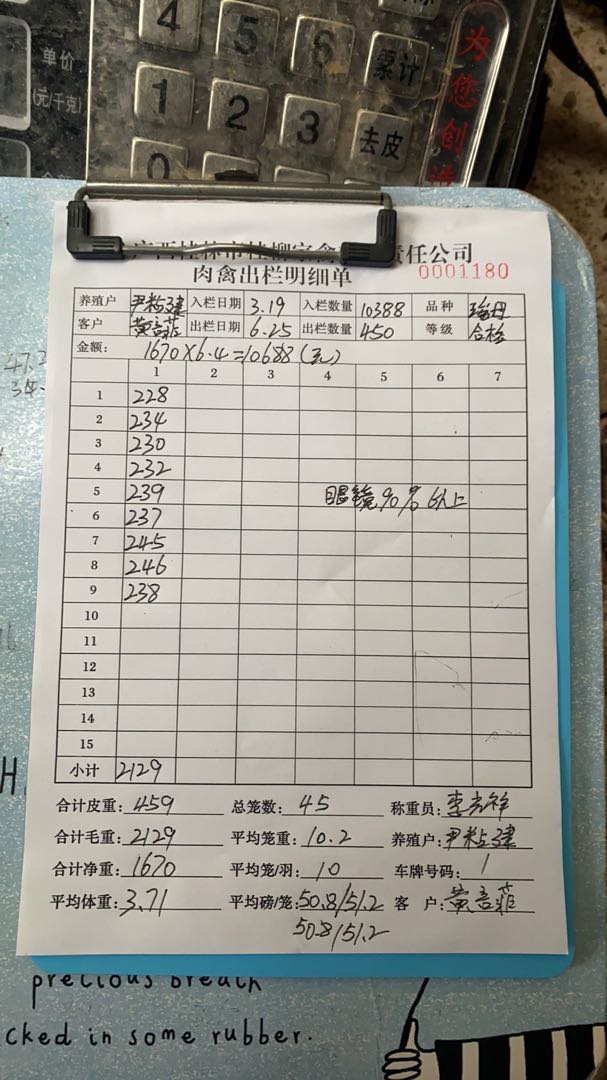 4 5 6 累计
单价
(元/千克)
1 2 3 去皮
0
为您创
责任公司
肉禽出栏明细单 0001180
养殖户 入栏日期 3.19 入栏数量 10388 品种
客户 黄言菲 出栏日期 6.25 出栏数量 450 等级 合格
金额: 1670×6.4=10688(元)
1 2 3 4 5 6 7
1 228
2 234
3 230
4 232
5 239 眼镜90%以上
6 237
7 245
8 246
9 238
10
11
12
13
14
15
小计 2129
合计皮重: 459 总笼数: 45 称重员:
合计毛重: 2129 平均笼重: 10.2 养殖户:
合计净重: 1670 平均笼/羽: 10 车牌号码: 1
平均体重: 3.71 平均磅/笼: 50.8/51.2 客 户: 黄言菲
50.8/51.2
precious breath
cked in some rubber.